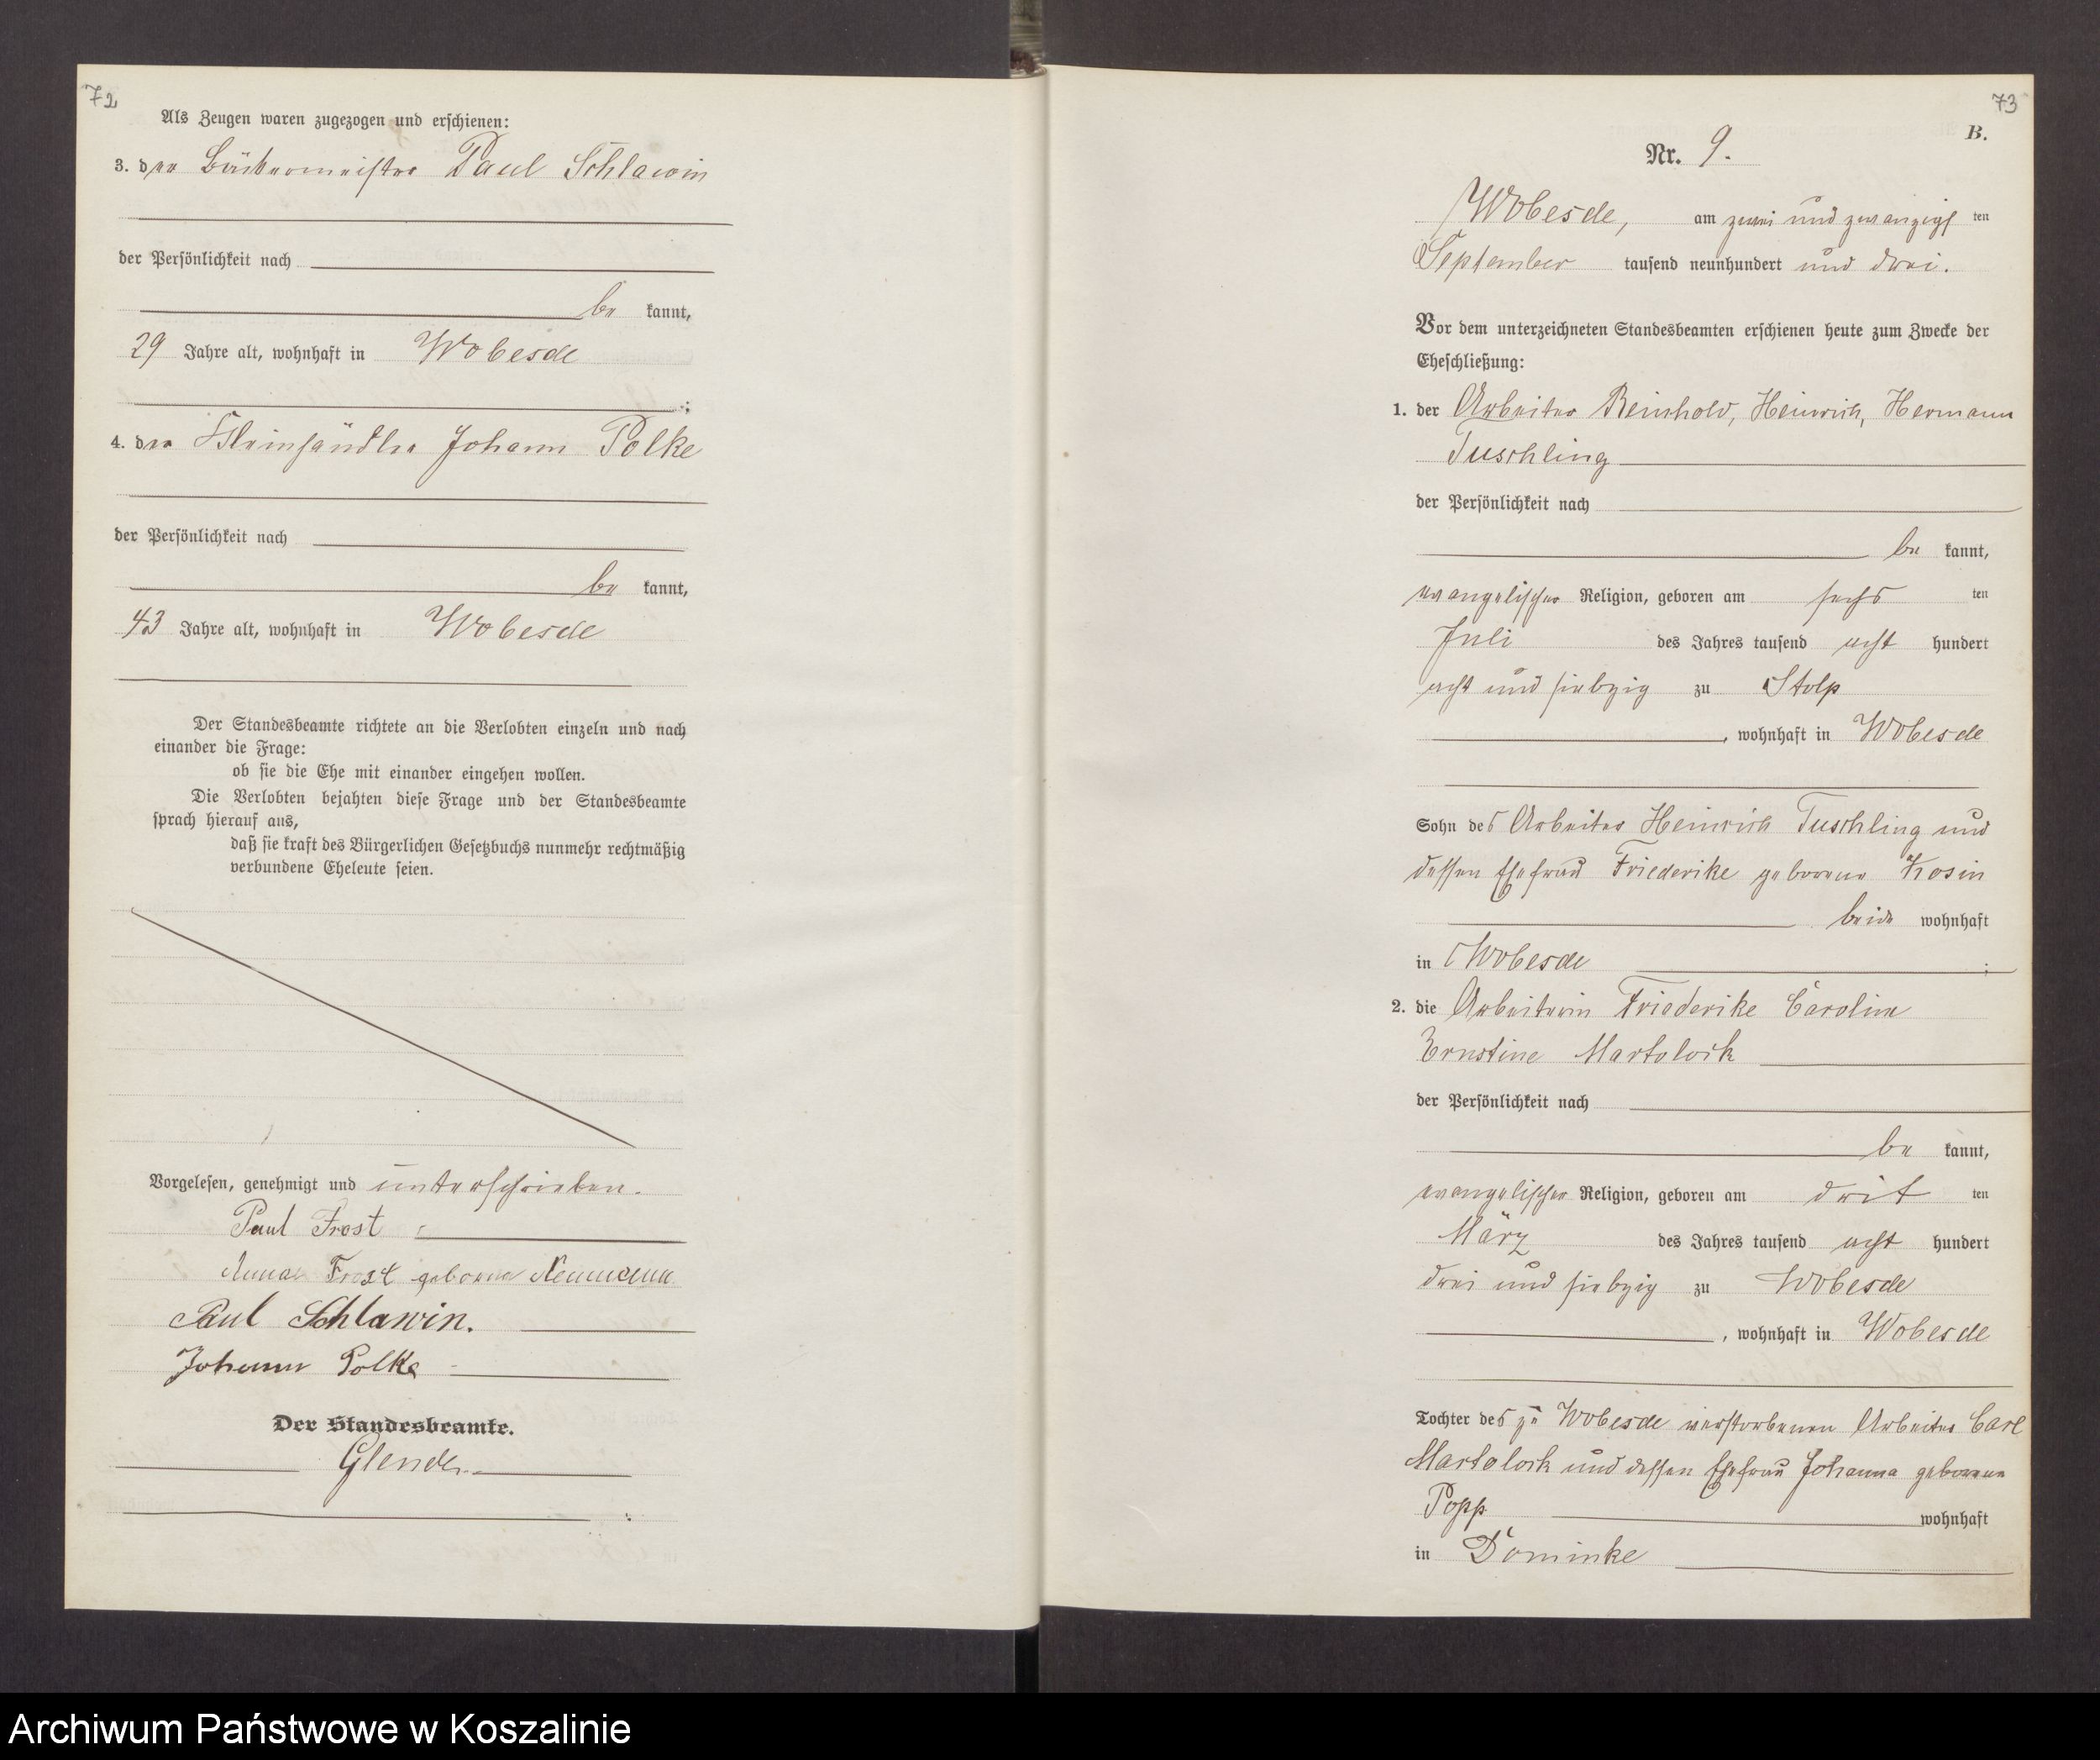 72
Als Zeugen waren zugezogen und erschienen:
3. der Bäckermeister Paul Schlawin
der Persönlichkeit nach
be kannt,
29 Jahre alt, wohnhaft in Wobesde
;
4. der Kleinhändler Johann Polke
der Persönlichkeit nach
be kannt,
43 Jahre alt, wohnhaft in Wobesde
Der Standesbeamte richtete an die Verlobten einzeln und nach
einander die Frage:
ob sie die Ehe mit einander eingehen wollen.
Die Verlobten bejahten diese Frage und der Standesbeamte
sprach hierauf aus,
daß sie kraft des Bürgerlichen Gesetzbuchs nunmehr rechtmäßig
verbundene Eheleute seien.
Vorgelesen, genehmigt und unterschrieben.
Paul Frost
Anna Frost geborene Neumann
Paul Schlawin.
Johann Polke
Der Standesbeamte.
73
B.
Nr. 9.
Wobesde, am zwei und zwanzigs ten
September tausend neunhundert und drei.
Vor dem unterzeichneten Standesbeamten erschienen heute zum Zwecke der
Eheschließung:
1. der Arbeiter Reinhold, Heinrich, Hermann
Tuschling
der Persönlichkeit nach
be kannt,
evangelischer Religion, geboren am sechs ten
Juli des Jahres tausend acht hundert
acht und siebzig zu Stolp
, wohnhaft in Wobesde
Sohn des Arbeiter Heinrich Tuschling und
dessen Ehefrau Friederike geborene Kosin
beide wohnhaft
in Wobesde ;
2. die Arbeiterin Friederike Caroline
Ernstine Martolock
der Persönlichkeit nach
be kannt,
evangelischer Religion, geboren am drit ten
März des Jahres tausend acht hundert
drei und siebzig zu Wobesde
, wohnhaft in Wobesde
Tochter des zu Wobesde verstorbenen Arbeiter Carl
Martolock und dessen Ehefrau Johanna geborene
Popp wohnhaft
in Dominke
Archiwum Państwowe w Koszalinie